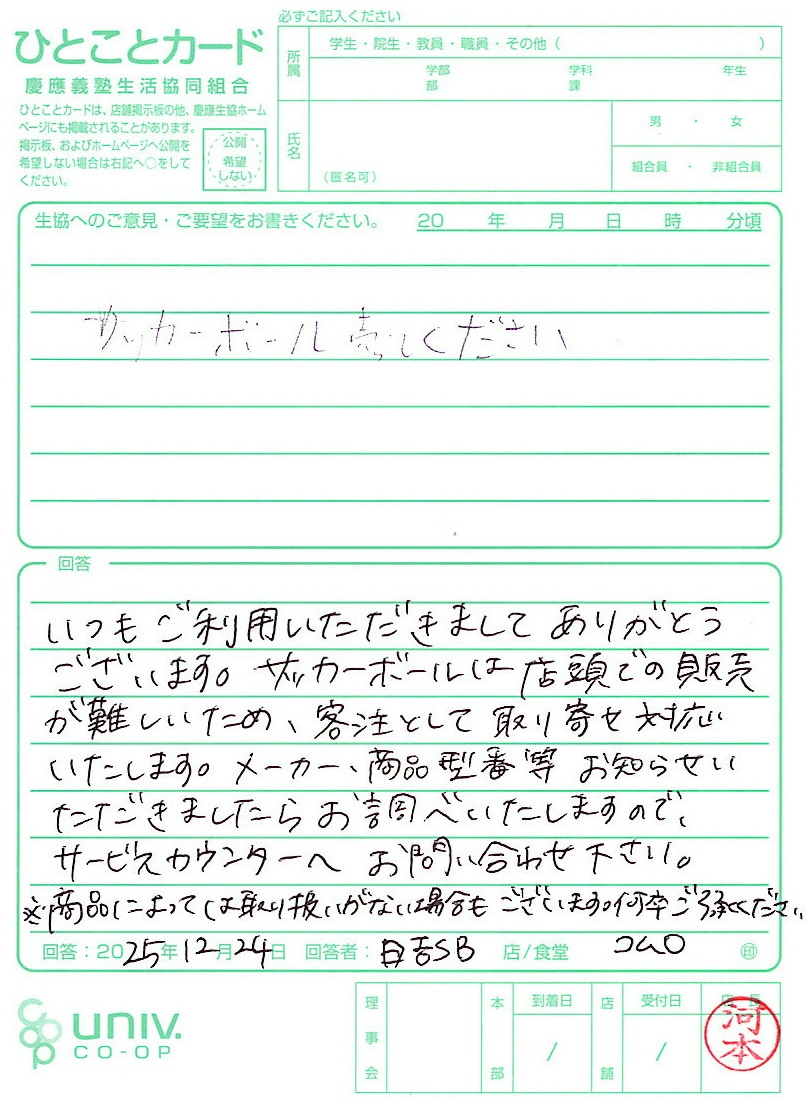 必ずご記入ください
ひとことカード
慶應義塾生活協同組合
ひとことカードは、店舗掲示板の他、慶應生協ホーム
ページにも掲載されることがあります。
掲示板、およびホームページへ公開を
希望しない場合は右記へ○をして
ください。
公開
希望
しない
所属
学生・院生・教員・職員・その他（　　　）
学部　学科　年生
部　課
氏名
（匿名可）
男・女
組合員・非組合員
生協へのご意見・ご要望をお書きください。　20　年　月　日　時　分頃
サッカーボール売ってください
回答
いつもご利用いただきましてありがとう
ございます。サッカーボールは店頭での販売
が難しいため、客注として取り寄せ対応
いたします。メーカー、商品型番等お知らせい
ただきましたらお調べいたしますので、
サービスカウンターへお問い合わせ下さい。
※商品によっては取り扱いがない場合もございます。何卒ご了承ください
回答：2025年12月24日　回答者：日吉SB　店/食堂　㊞
coop univ.
CO-OP
理事会
本部
到着日
/
店舗
受付日
/
店長
河本